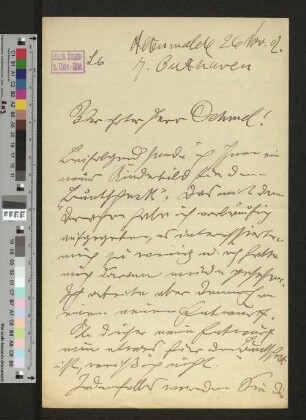 Altenwalde 26 Nov. 02.
b. Cuxhaven
26
Verehrter Herr Dehmel!
Beifolgend sende ich Ihnen ein
neues Kinderbild für den
Buntscheck. Das mit dem
Drachen habe ich vorläufig
aufgegeben, es interessierte
mich zu wenig u. ich hatte
mich daran müde gesehen.
Ich arbeite aber dennoch an
einem neuen Entwurf.
Ob dieser neue Entwurf
nun etwas für den Buntscheck
ist, weiß ich nicht.
Jedenfalls werden Sie die